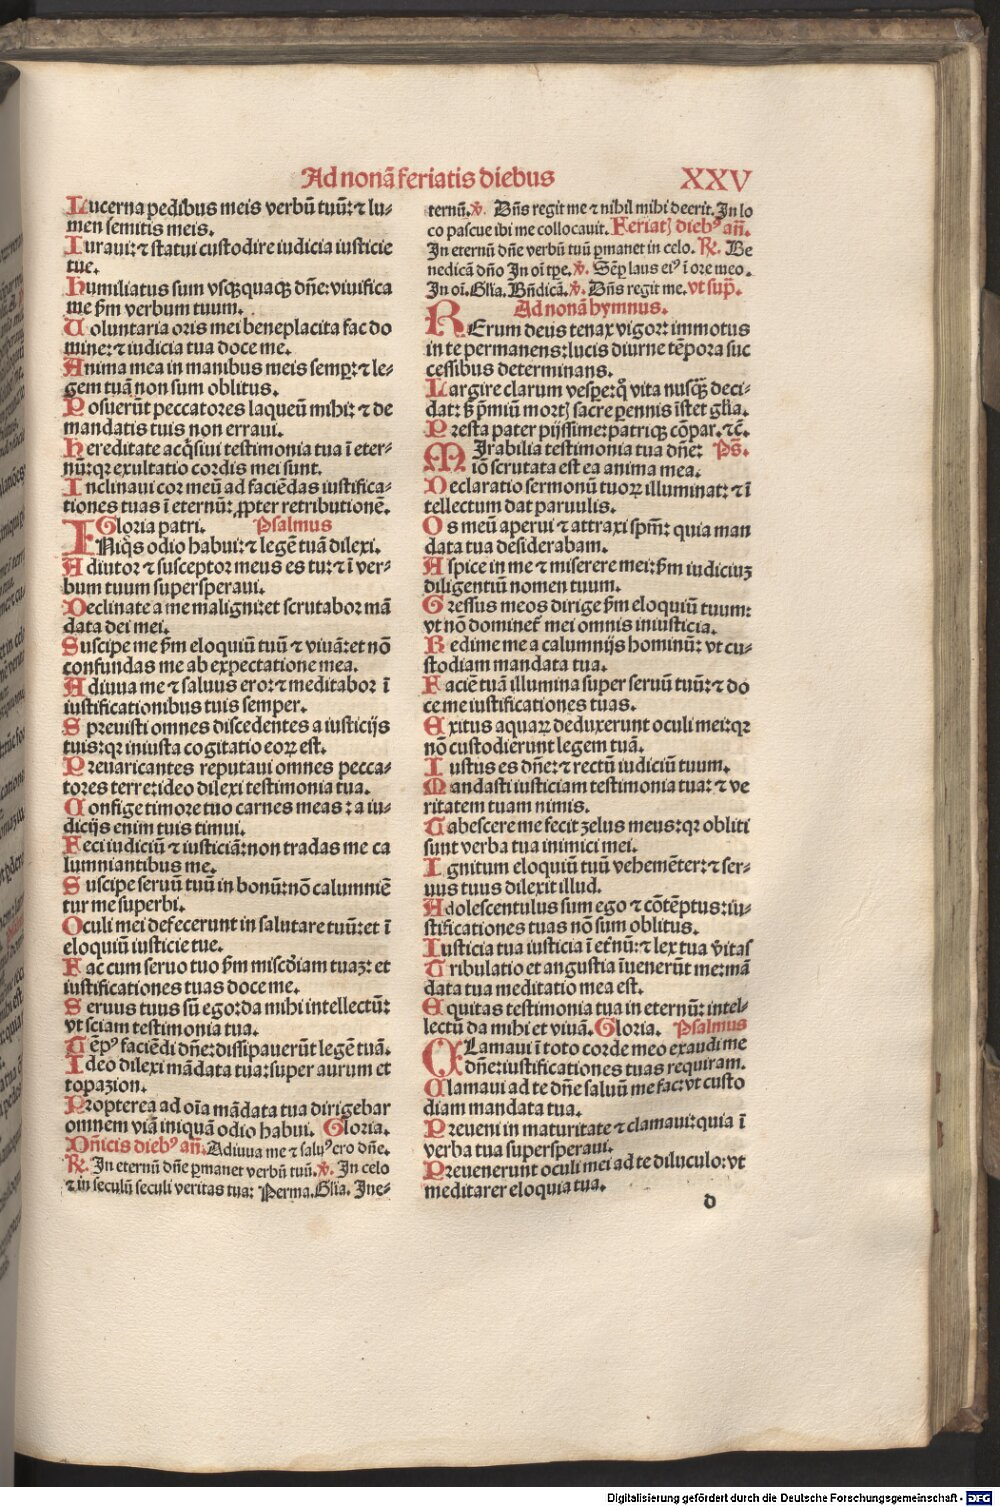 Ad nonã feriatis diebus XXV
Lucerna pedibus meis verbũ tuũ: ⁊ lu-
men semitis meis.
Iuraui: ⁊ statui custodire iudicia iusticie
tue.
Humiliatus sum vsqꝫquaqꝫ dñe: viuifica
me ẜm verbum tuum.
Voluntaria oris mei beneplacita fac do
mine: ⁊ iudicia tua doce me.
Anima mea in manibus meis semꝑ: ⁊ le-
gem tuã non sum oblitus.
Posuerũt peccatores laqueũ mihi: ⁊ de
mandatis tuis non erraui.
Hereditate acq̃siui testimonia tua ĩ eter-
nũ: qꝛ exultatio cordis mei sunt.
Inclinaui cor meũ ad faciẽdas iustifica-
tiones tuas ĩ eternũ: ꝓpter retributionẽ.
Gloria patri. Psalmus
INiq̃s odio habui: ⁊ legẽ tuã dilexi.
Adiutor ⁊ susceptor meus es tu: ⁊ ĩ ver-
bum tuum supersperaui.
Declinate a me maligni: et scrutabor mã
data dei mei.
Suscipe me ẜm eloquiũ tuũ ⁊ viuã: et nõ
confundas me ab expectatione mea.
Adiuua me ⁊ saluus ero: ⁊ meditabor ĩ
iustificationibus tuis semper.
Spreuisti omnes discedentes a iusticijs
tuis: qꝛ iniusta cogitatio eoꝝ est.
Preuaricantes reputaui omnes pecca-
tores terre: ideo dilexi testimonia tua.
Confige timore tuo carnes meas: a iu-
dicijs enim tuis timui.
Feci iudiciũ ⁊ iusticiã: non tradas me ca
lumniantibus me.
Suscipe seruũ tuũ in bonũ: nõ calumniẽ
tur me superbi.
Oculi mei defecerunt in salutare tuũ: et ĩ
eloquiũ iusticie tue.
Fac cum seruo tuo ẜm misc̃diam tuaꝫ: et
iustificationes tuas doce me.
Seruus tuus sũ ego: da mihi intellectũ:
vt sciam testimonia tua.
Tẽpꝰ faciẽdi dñe: dissipauerũt legẽ tuã.
Ideo dilexi mãdata tua: super aurum et
topazion.
Propterea ad oĩa mãdata tua dirigebar
omnem viã iniquã odio habui. Gloria.
Dñicis diebꝰ añ. Adiuua me ⁊ saluꝰ ero dñe.
℟. In eternũ dñe ꝑmanet verbũ tuũ. ℣. In celo
⁊ in seculũ seculi veritas tua: Perma. Glĩa. In e-
ternũ. ℣. Dñs regit me ⁊ nihil mihi deerit. In lo
co pascue ibi me collocauit. Feriatꝭ diebꝰ añ.
In eternũ dñe verbũ tuũ ꝑmanet in celo. ℟. Be
nedicã dño In oĩ tꝑe. ℣. Sẽꝑ laus eiꝰ ĩ ore meo.
In oĩ. Glĩa. Bñdicã. ℣. Dñs regit me. vt supͣ.
Ad nonã hymnus.
RErum deus tenax vigor: immotus
in te permanens: lucis diurne tẽpora suc
cessibus determinans.
Largire clarum vespere: q̃ vita nusq̃ deci-
dat: sꝫ p̃miũ mortꝭ sacre perennis ĩstet glĩa.
Presta pater pijssime: patriqꝫ cõpar. ⁊c̃.
MIrabilia testimonia tua dñe: Ps̃.
iõ scrutata est ea anima mea.
Declaratio sermonũ tuoꝝ illuminat: ⁊ ĩ
tellectum dat paruulis.
Os meũ aperui ⁊ attraxi sp̃m: quia man
data tua desiderabam.
Aspice in me ⁊ miserere mei: ẜm iudiciuꝫ
diligentiũ nomen tuum.
Gressus meos dirige ẜm eloquiũ tuum:
vt nõ dominet̃ mei omnis iniusticia.
Redime me a calumnijs hominũ: vt cu-
stodiam mandata tua.
Faciẽ tuã illumina super seruũ tuũ: ⁊ do
ce me iustificationes tuas.
Exitus aquaꝝ deduxerunt oculi mei: qꝛ
nõ custodierunt legem tuã.
Iustus es dñe: ⁊ rectũ iudiciũ tuum.
Mandasti iusticiam testimonia tua: ⁊ ve
ritatem tuam nimis.
Tabescere me fecit zelus meus: qꝛ obliti
sunt verba tua inimici mei.
Ignitum eloquiũ tuũ vehemẽter: ⁊ ser-
uus tuus dilexit illud.
Adolescentulus sum ego ⁊ cõtẽptus: iu-
stificationes tuas nõ sum oblitus.
Iusticia tua iusticia ĩ et̃nũ: ⁊ lex tua ṽitas
Tribulatio et angustia ĩuenerũt me: mã
data tua meditatio mea est.
Equitas testimonia tua in eternũ: intel-
lectũ da mihi et viuã. Gloria. Psalmus
CLamaui ĩ toto corde meo exaudi me
dñe: iustificationes tuas requiram.
Clamaui ad te dñe saluũ me fac: vt custo
diam mandata tua.
Preueni in maturitate ⁊ clamaui: quia ĩ
verba tua supersperaui.
Preuenerunt oculi mei ad te diluculo: vt
meditarer eloquia tua.
d
Digitalisierung gefördert durch die Deutsche Forschungsgemeinschaft - DFG